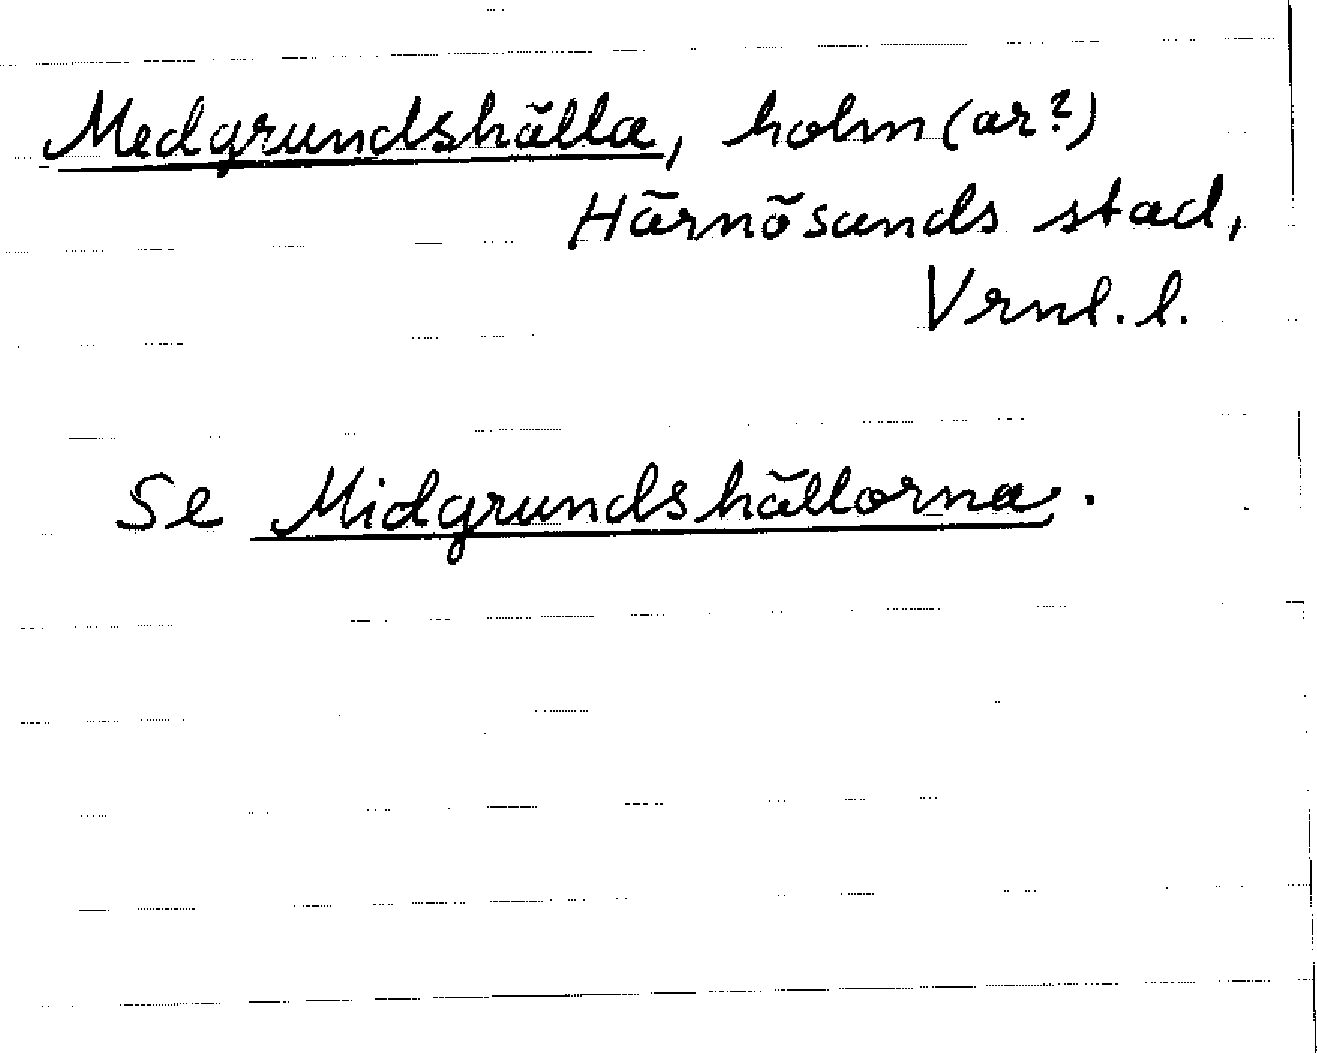 Medgrundshälla, holm(ar?)
Härnösands stad,
Vrnl. l.
Se Midgrundshällorna.